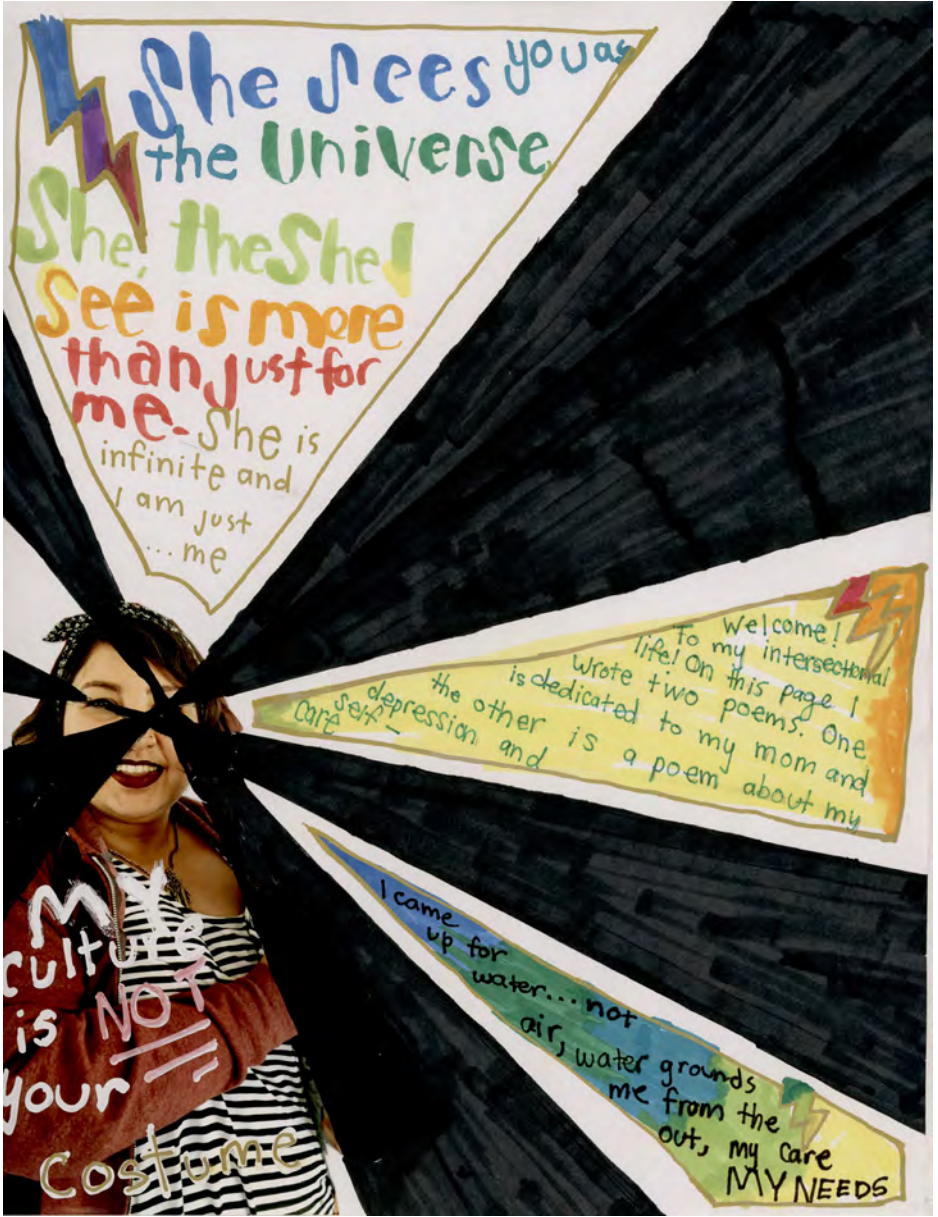 She sees you as
the Universe
She, the She I
see is more
than just for
me. She is
infinite and
I am just
... me
Welcome!
To my intersectional
life! On this page I
wrote two poems. One
is dedicated to my mom and
the other is a poem about my
depression and
self-
care
I came
up for
water... not
air, water grounds
me from the
out, my care
MY NEEDS
MY
culture
is NOT
your
Costume